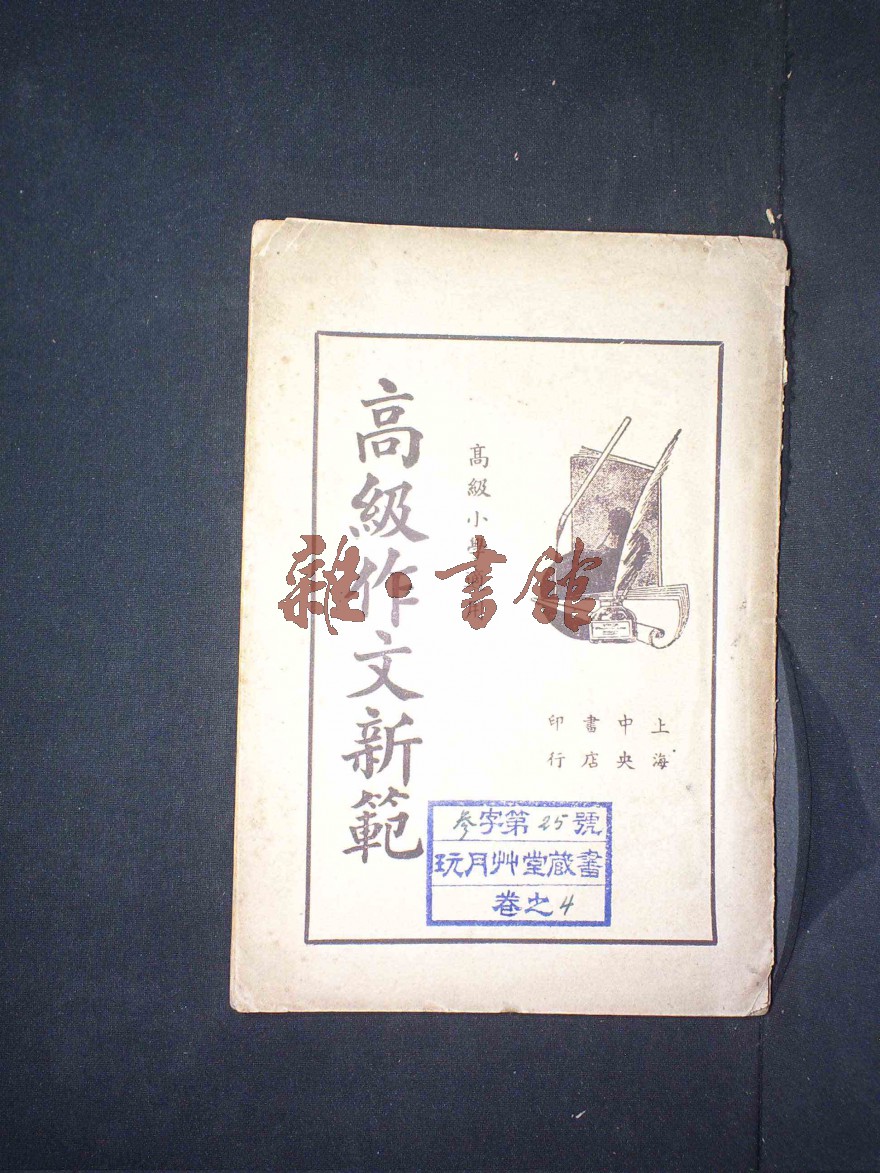 高級作文新範
高級小學適用
上海
中央
書店
印行
參字第25號
玩月艸堂藏書
卷之4
雜·書館